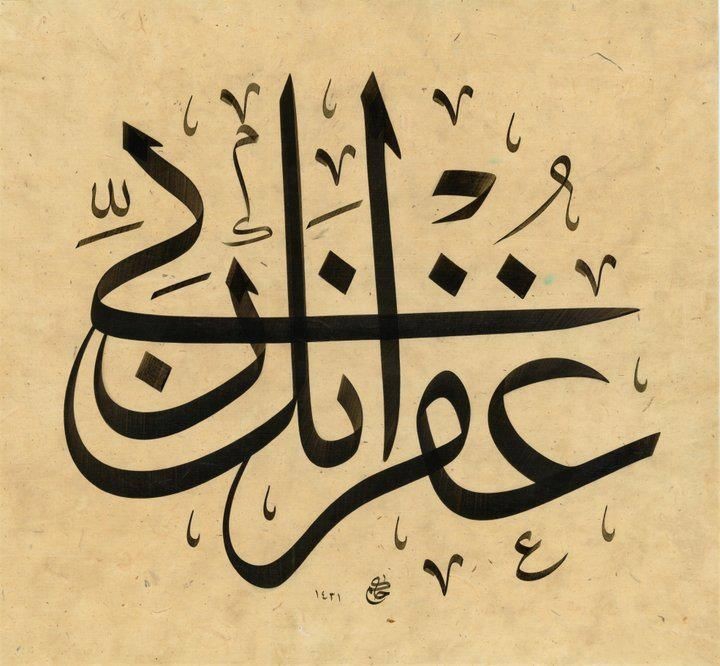 غُفْرَانَكَ رَبِّي
١٤٣١